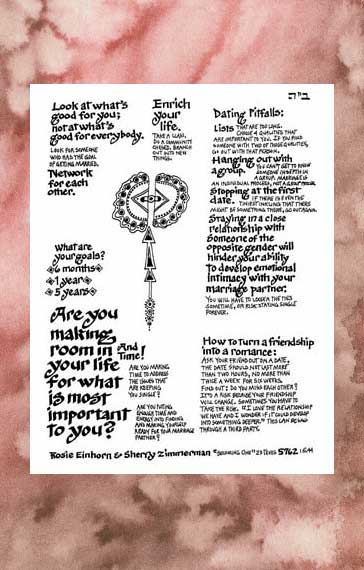 ב״ה
Look at what's
good for you;
not at what's
good for everybody.
Look for someone
who has the goal
of getting married.
Network
for each
other.
Enrich
your
life.
Take a class,
do a community
chesed. Branch
out into new
things.
Dating Pitfalls:
Lists that are too long.
Choose 4 qualities that
are important to you. If you find
someone with two of those qualities,
go out with that person.
Hanging out with
a group. You can't get to know
someone in depth in
a group. Marriage is
an individual process, not a group
Stopping at the first
date. If there is even the
thinking that there
might be something there, go out again.
Staying in a close
relationship with
someone of the
opposite gender will
hinder your ability
to develop emotional
intimacy with your
marriage partner.
You will have to loosen the ties
sometime, or risk staying single
forever.
What are
your goals?
6 months
1 year
5 years
Are you
making
room in
your life
for what
is most
important
to you?
And
Time!
Are you making
time to address
the issues that
are keeping
you single?
Are you putting
enough time and
energy into finding
and making yourself
ready for your marriage
partner?
How to turn a friendship
into a romance:
Ask your friend out on a date.
The date should not last more
than two hours, no more than
twice a week for six weeks.
Find out: do you mind each other?
It's a risk because your friendship
will change. Sometimes you have to
take the risk. "I love the relationship
we have and I wonder if it could develop
into something deeper." This can be said
through a third party.
Rosie Einhorn & Sherry Zimmerman "Becoming One" 23 Teves 5762